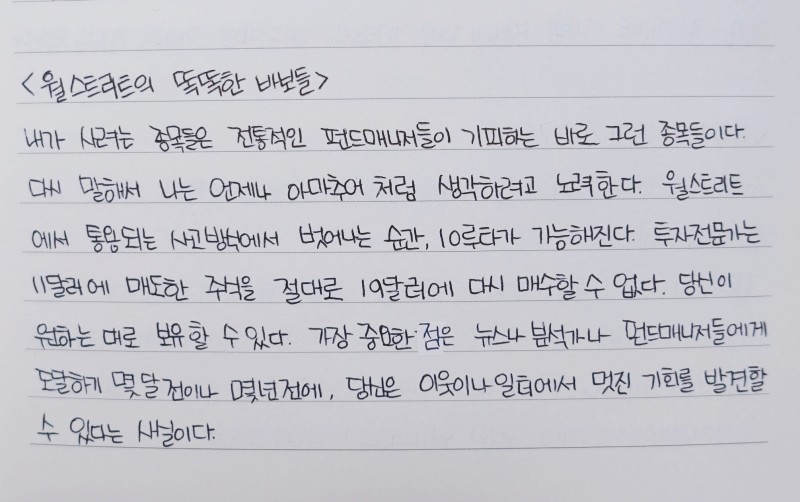 <월스트리트의 똑똑한 바보들>
내가 사려는 종목들은 전통적인 펀드매니저들이 기피하는 바로 그런 종목들이다.
다시 말해서 나는 언제나 아마추어처럼 생각하려고 노력한다. 월스트리트
에서 통용되는 사고방식에서 벗어나는 순간, 10루타가 가능해진다. 투자전문가는
11달러에 매도한 주식을 절대로 19달러에 다시 매수할 수 없다. 당신이
원하는 대로 보유할 수 있다. 가장 중요한 점은 뉴스나 분석가나 펀드매니저들에게
도달하기 몇 달 전이나 몇년전에, 당신은 이웃이나 일터에서 멋진 기회를 발견할
수 있다는 사실이다.